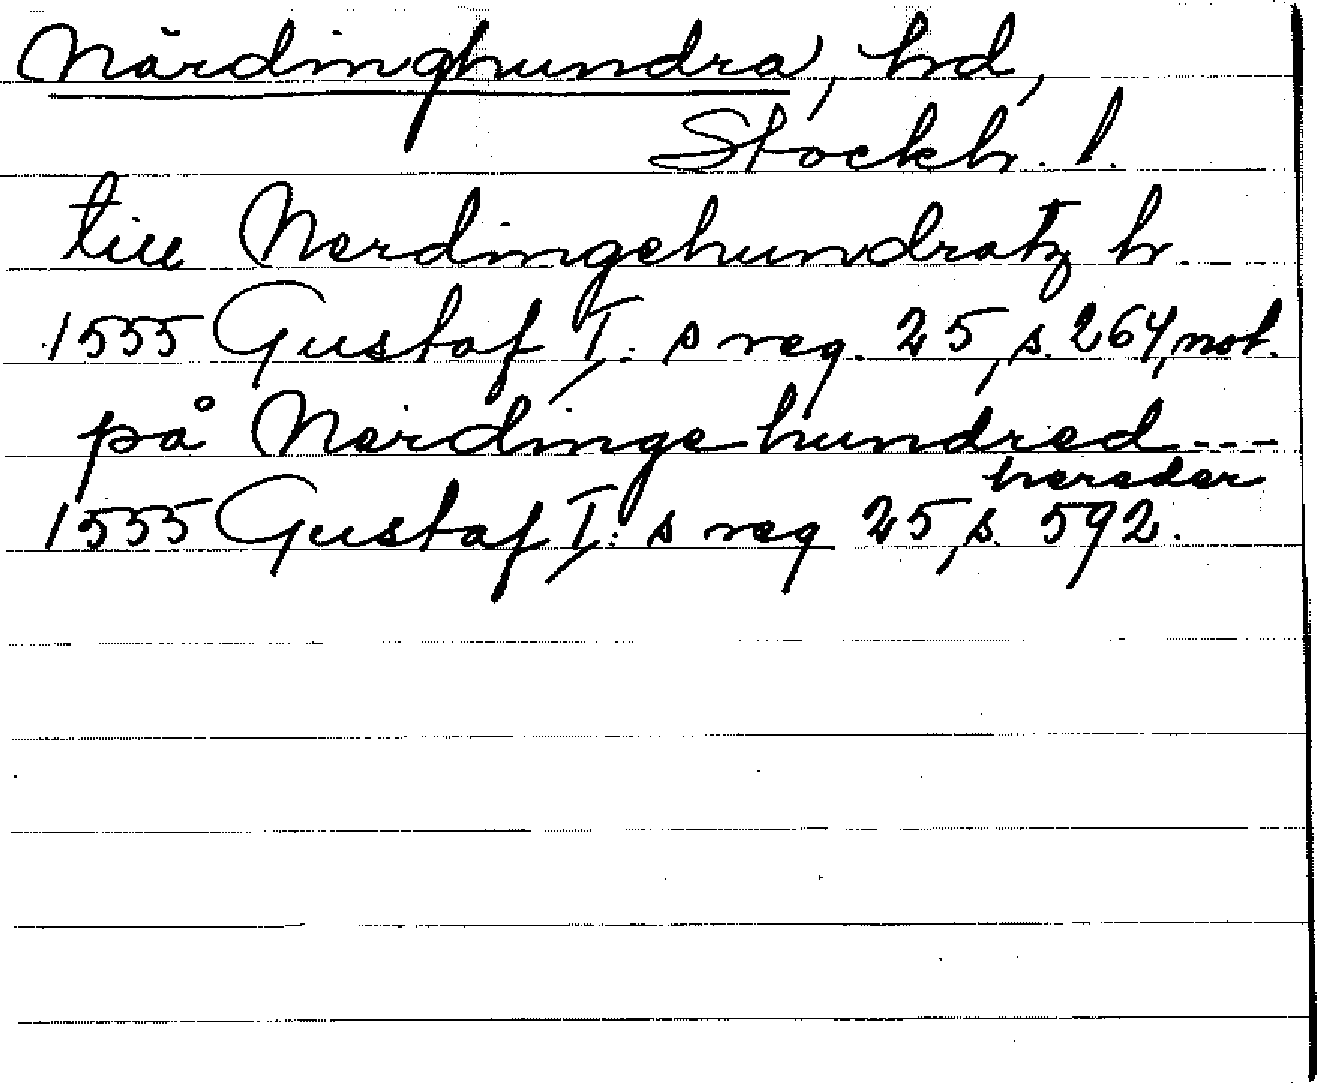 Närdinghundra, hd,
Stockh. l.
till Nerdingehundratz h.
1555 Gustaf I: s reg. 25, s. 264, not.
på Nerdinge hundred ---
hereder
1555 Gustaf I: s reg 25, s. 592.